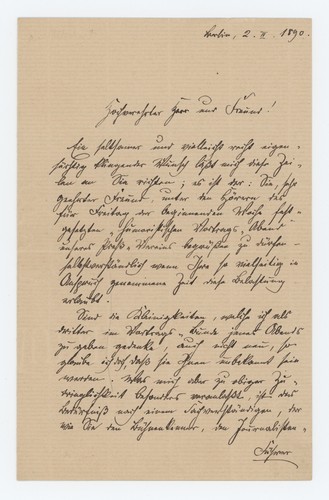 Berlin, 2. II. 1890.
Hochverehrter Herr und Freund!
Ein seltsamer und vielleicht recht eigen-
süchtig klingender Wunsch läßt mich diese Zei-
len an Sie richten; es ist der: Sie, sehr
geehrter Freund, unter den Hörern des
für Freitag der beginnenden Woche fest-
gesetzten „humoristischen Vortrags-Abend
unseres Preß-Vereins begrüßen zu dürfen –
selbstverständlich wenn Ihre so vielseitig in
Anspruch genommene Zeit diese Belastung
erlaubt.
Sind die Kleinigkeiten, welche ich als
dritter im Vortrags-Bunde jenes Abends
zu geben gedenke, auch nicht neu, so
glaube ich doch, daß sie Ihnen unbekannt sein
werden. Was mich aber zu obiger Zu-
dringlichkeit besonders veranlaßt, ist das
Bedürfniß nach einem Sachverständigen, der
wie Sie den Bühnenkenner, den Journalisten-
Führer